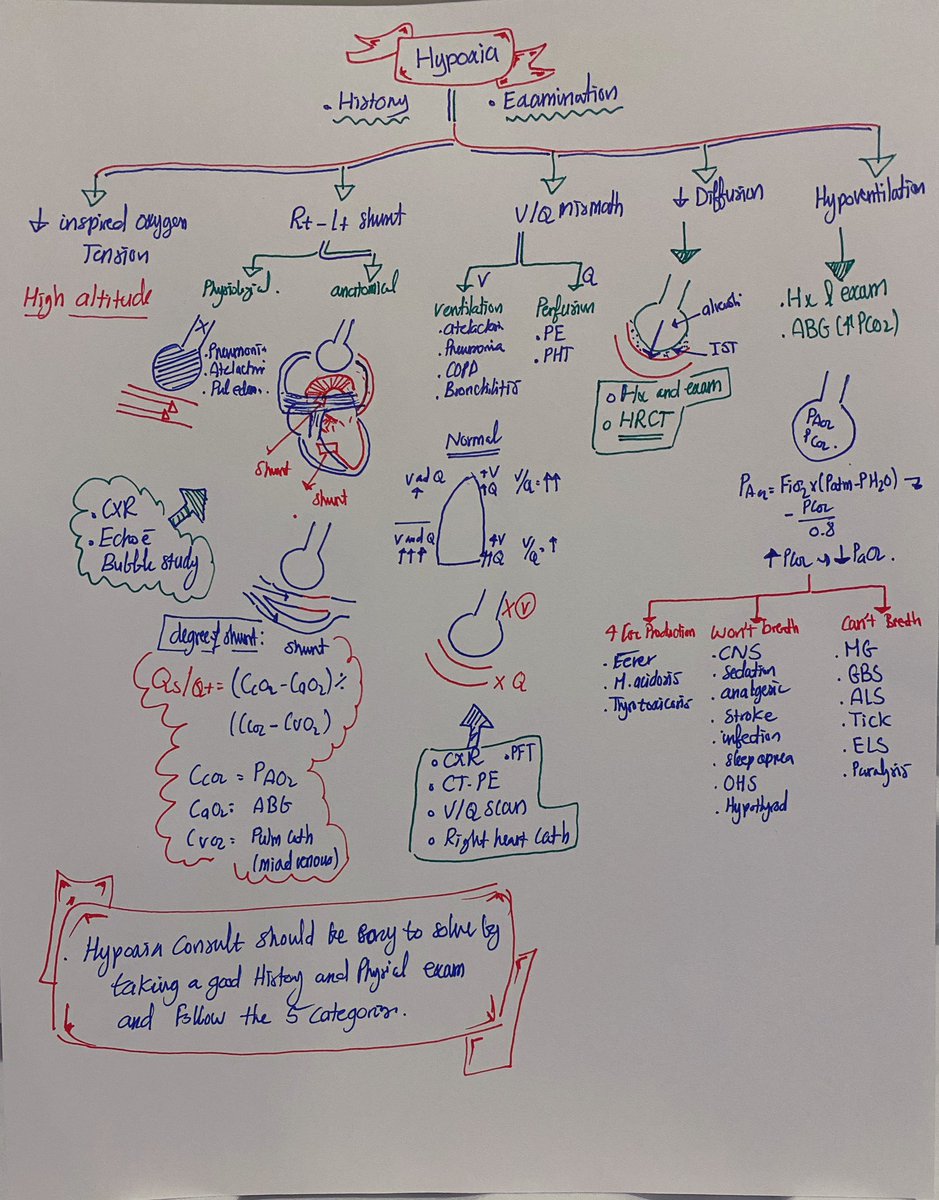 Hypoxia
• History
• Examination
↓ inspired oxygen
Tension
High altitude
Rt-Lt shunt
Physiological.
anatomical
X
• Pneumoni.
• Atelactni
• Pul edem..
shunt
shunt
• CXR
• Echo c̄
Bubble study
shunt
degree of shunt:
Qs/Qt = (CcO2 - CaO2) ٪
((CcO2 - CvO2)
CcO2 = PAO2
CaO2: ABG
CvO2: Pulm cath
(miad venous)
V/Q mismath
V
Q
Ventilation
• atelactain
• Pneumonia
• COPD
• Bronchilitis
Perfusion
• PE
• PHT
Normal
V and Q
↑
↑V
↑Q
V/Q = ↑↑
V and Q
↑↑↑
↑V
↑↑Q
V/Q = ↑
X V
X Q
• CXR • PFT
• CT-PE
• V/Q scan
• Right heart cath
↓ Diffusion
alveoli
IST
• Hx and exam
• HRCT
Hypoventilation
• Hx & exam
• ABG (↑PCO2)
PAO2
PCO2
PAO2 = FiO2 x (Patm - PH2O) →
- PCO2
0.8
↑ PCO2 → ↓ PaO2.
↑ CO2 Production
• Fever
• M. acidosis
• Thyrotoxicosis
Won't breath
• CNS
• Sedation
• analgesic
• Stroke
• infection
• sleep apnea
• OHS
• Hypothyrod
Can't Breath
• MG
• GBS
• ALS
• Tick
• ELS
• Paralysis
• Hypoxia Consult should be easy to solve by
taking a good History and Physical exam
and Follow the 5 Categories.